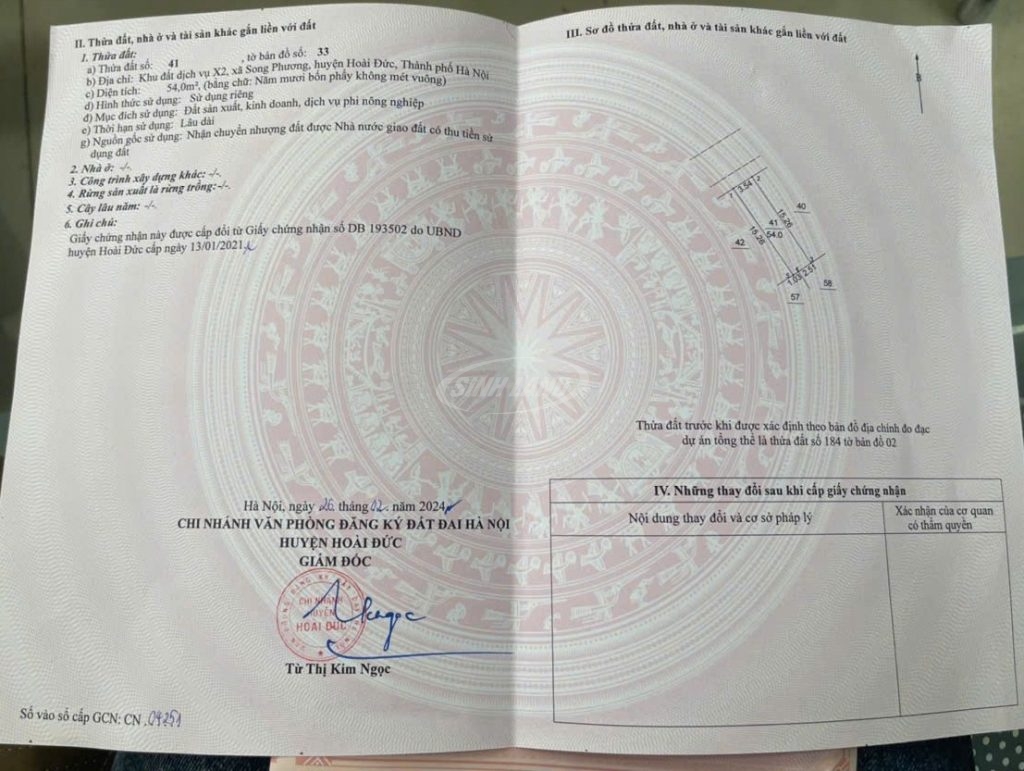 II. Thửa đất, nhà ở và tài sản khác gắn liền với đất
1. Thửa đất:
a) Thửa đất số: 41 , tờ bản đồ số: 33
b) Địa chỉ: Khu đất dịch vụ X2, xã Song Phương, huyện Hoài Đức, Thành phố Hà Nội
c) Diện tích: 54,0m², (bằng chữ: Năm mươi bốn phẩy không mét vuông)
d) Hình thức sử dụng: Sử dụng riêng
đ) Mục đích sử dụng: Đất sản xuất, kinh doanh, dịch vụ phi nông nghiệp
e) Thời hạn sử dụng: Lâu dài
g) Nguồn gốc sử dụng: Nhận chuyển nhượng đất được Nhà nước giao đất có thu tiền sử
dụng đất
2. Nhà ở: -/-.
3. Công trình xây dựng khác: -/-.
4. Rừng sản xuất là rừng trồng:-/-.
5. Cây lâu năm: -/-.
6. Ghi chú:
Giấy chứng nhận này được cấp đổi từ Giấy chứng nhận số DB 193502 do UBND
huyện Hoài Đức cấp ngày 13/01/2021.
Hà Nội, ngày 26 tháng 02. năm 2024
CHI NHÁNH VĂN PHÒNG ĐĂNG KÝ ĐẤT ĐAI HÀ NỘI
HUYỆN HOÀI ĐỨC
GIÁM ĐỐC
CHI NHÁNH
HUYỆN
HOÀI ĐỨC
Từ Thị Kim Ngọc
Số vào sổ cấp GCN: CN .04251
III. Sơ đồ thửa đất, nhà ở và tài sản khác gắn liền với đất
B
1
3.54
2
40
15.26
41
54.0
15.26
42
1.03
2.51
58
57
Thửa đất trước khi được xác định theo bản đồ địa chính đo đạc
dự án tổng thể là thửa đất số 184 tờ bản đồ 02
IV. Những thay đổi sau khi cấp giấy chứng nhận
Nội dung thay đổi và cơ sở pháp lý
Xác nhận của cơ quan
có thẩm quyền